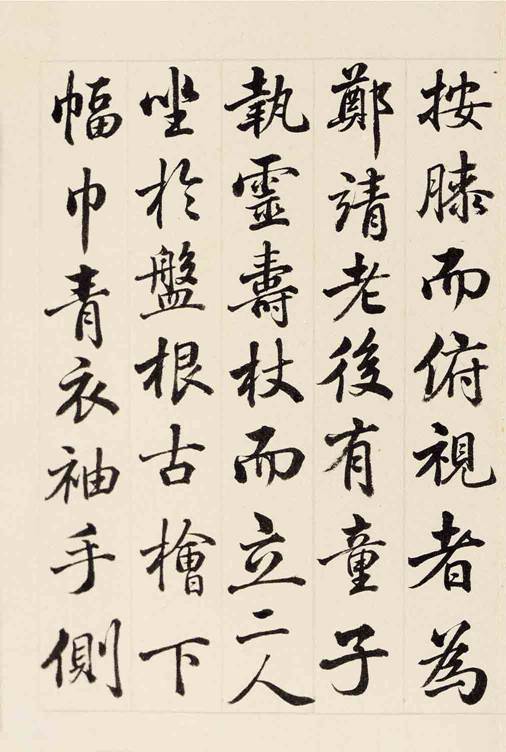 按膝而俯視者為
鄭靖老後有童子
執靈壽杖而立二人
坐於盤根古檜下
幅巾青衣袖手側